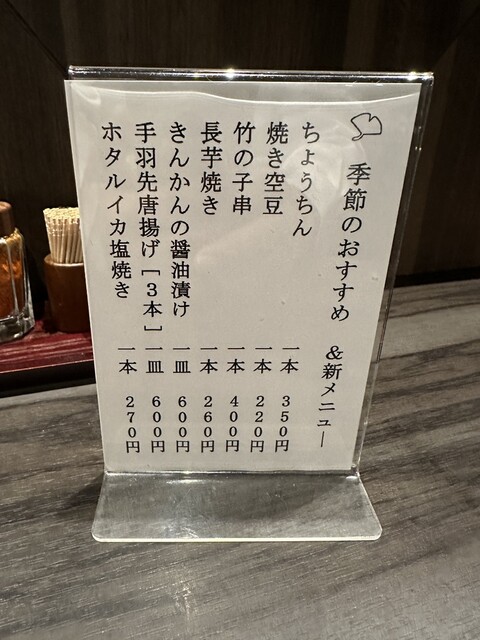 季節のおすすめ &新メニュー
ちょうちん 一本 350円
焼き空豆 一本 220円
竹の子串 一本 400円
長芋焼き 一本 260円
きんかんの醤油漬け 一皿 600円
手羽先唐揚げ[3本] 一皿 600円
ホタルイカ塩焼き 一本 270円